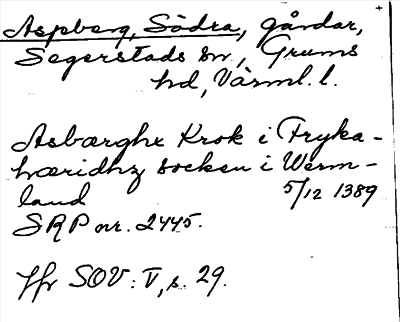 Aspberg, Södra, gårdar,
Segerstads sn, Grums
hd, Värml. l.
Asbærghx Krok i Fryka-
hæridhz socken i Werm-
land 5/12 1389
SRP nr. 2445.
Jfr SOV: V, s. 29.